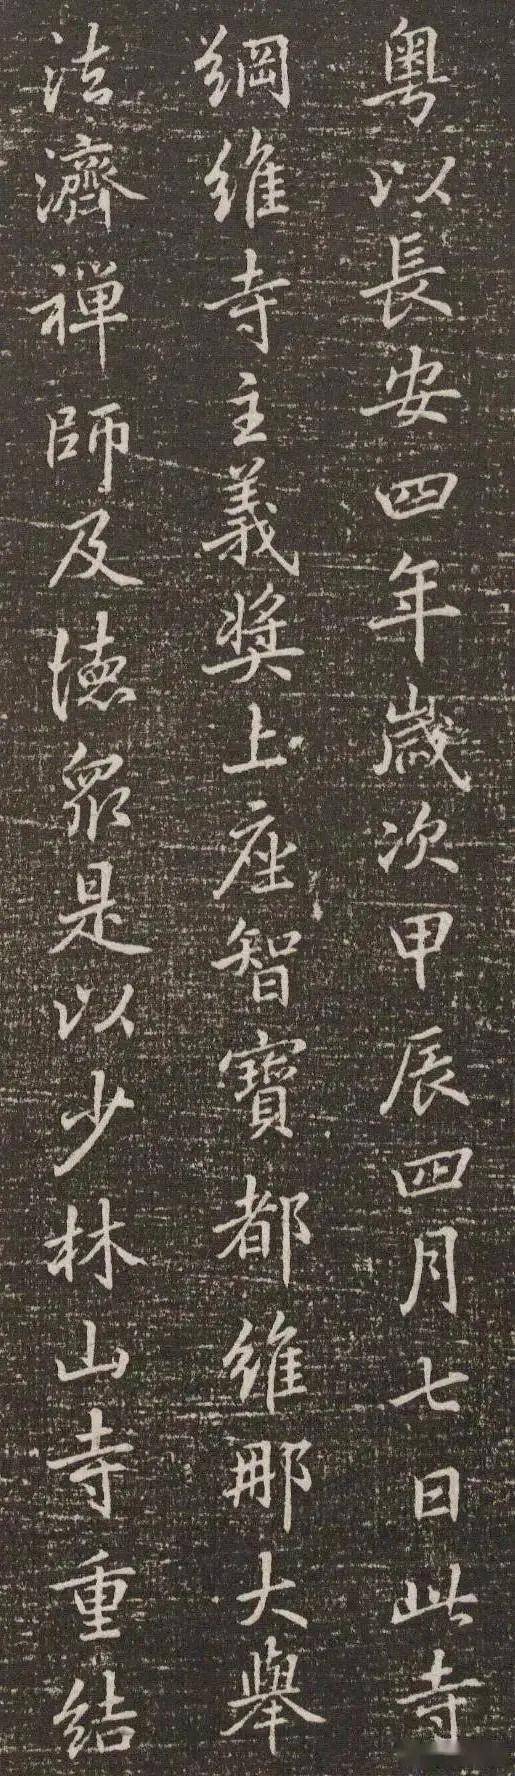 粤以長安四年歳次甲辰四月七日此寺
綱維寺主義奬上座智寶都維那大舉
法濟禅師及德衆是以少林山寺重結